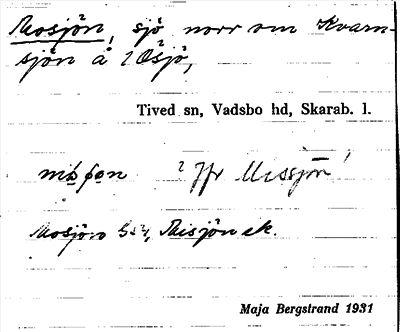 Mosjön, sjö norr om Kvarn-
sjön å 2 Ösjö,
Tived sn, Vadsbo hd, Skarab. l.
? Jfr Missjön!
Mosjön GSK, Misjön ek.
Maja Bergstrand 1931